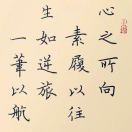 心之所向
素履以往
生如逆旅
一葦以航